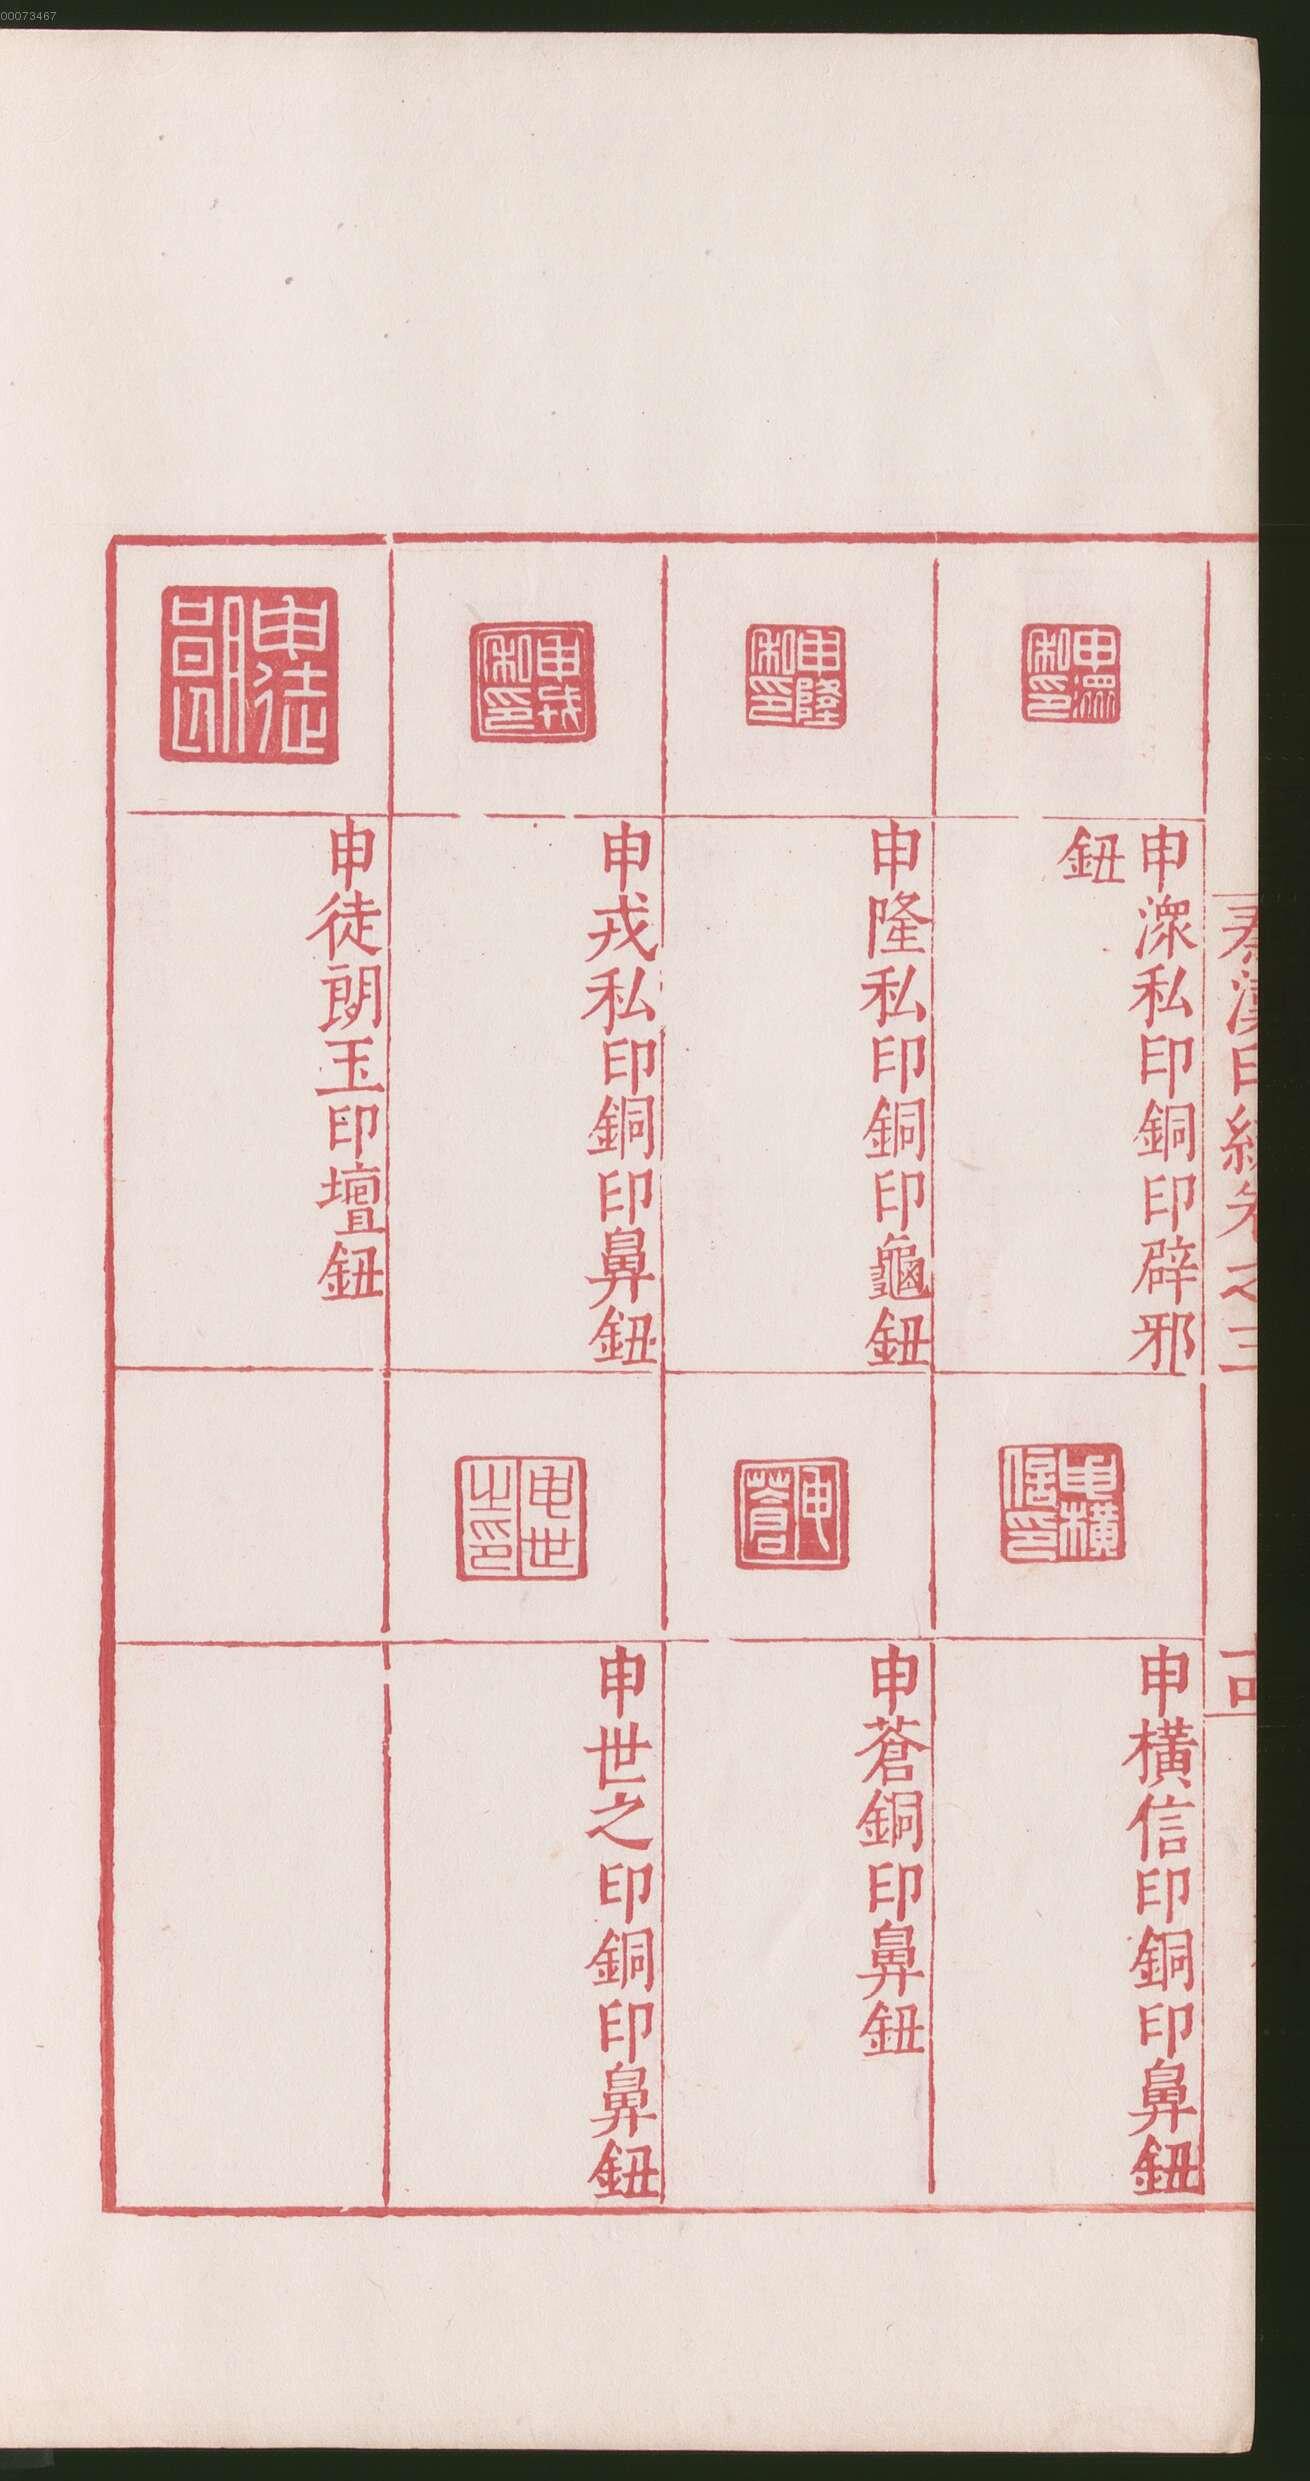 00073467
秦漢印統卷之三
申潀私印銅印辟邪
鈕
申隆私印銅印龜鈕
申戎私印銅印鼻鈕
申徒朗玉印壇鈕
申橫信印銅印鼻鈕
申蒼銅印鼻鈕
申世之印銅印鼻鈕